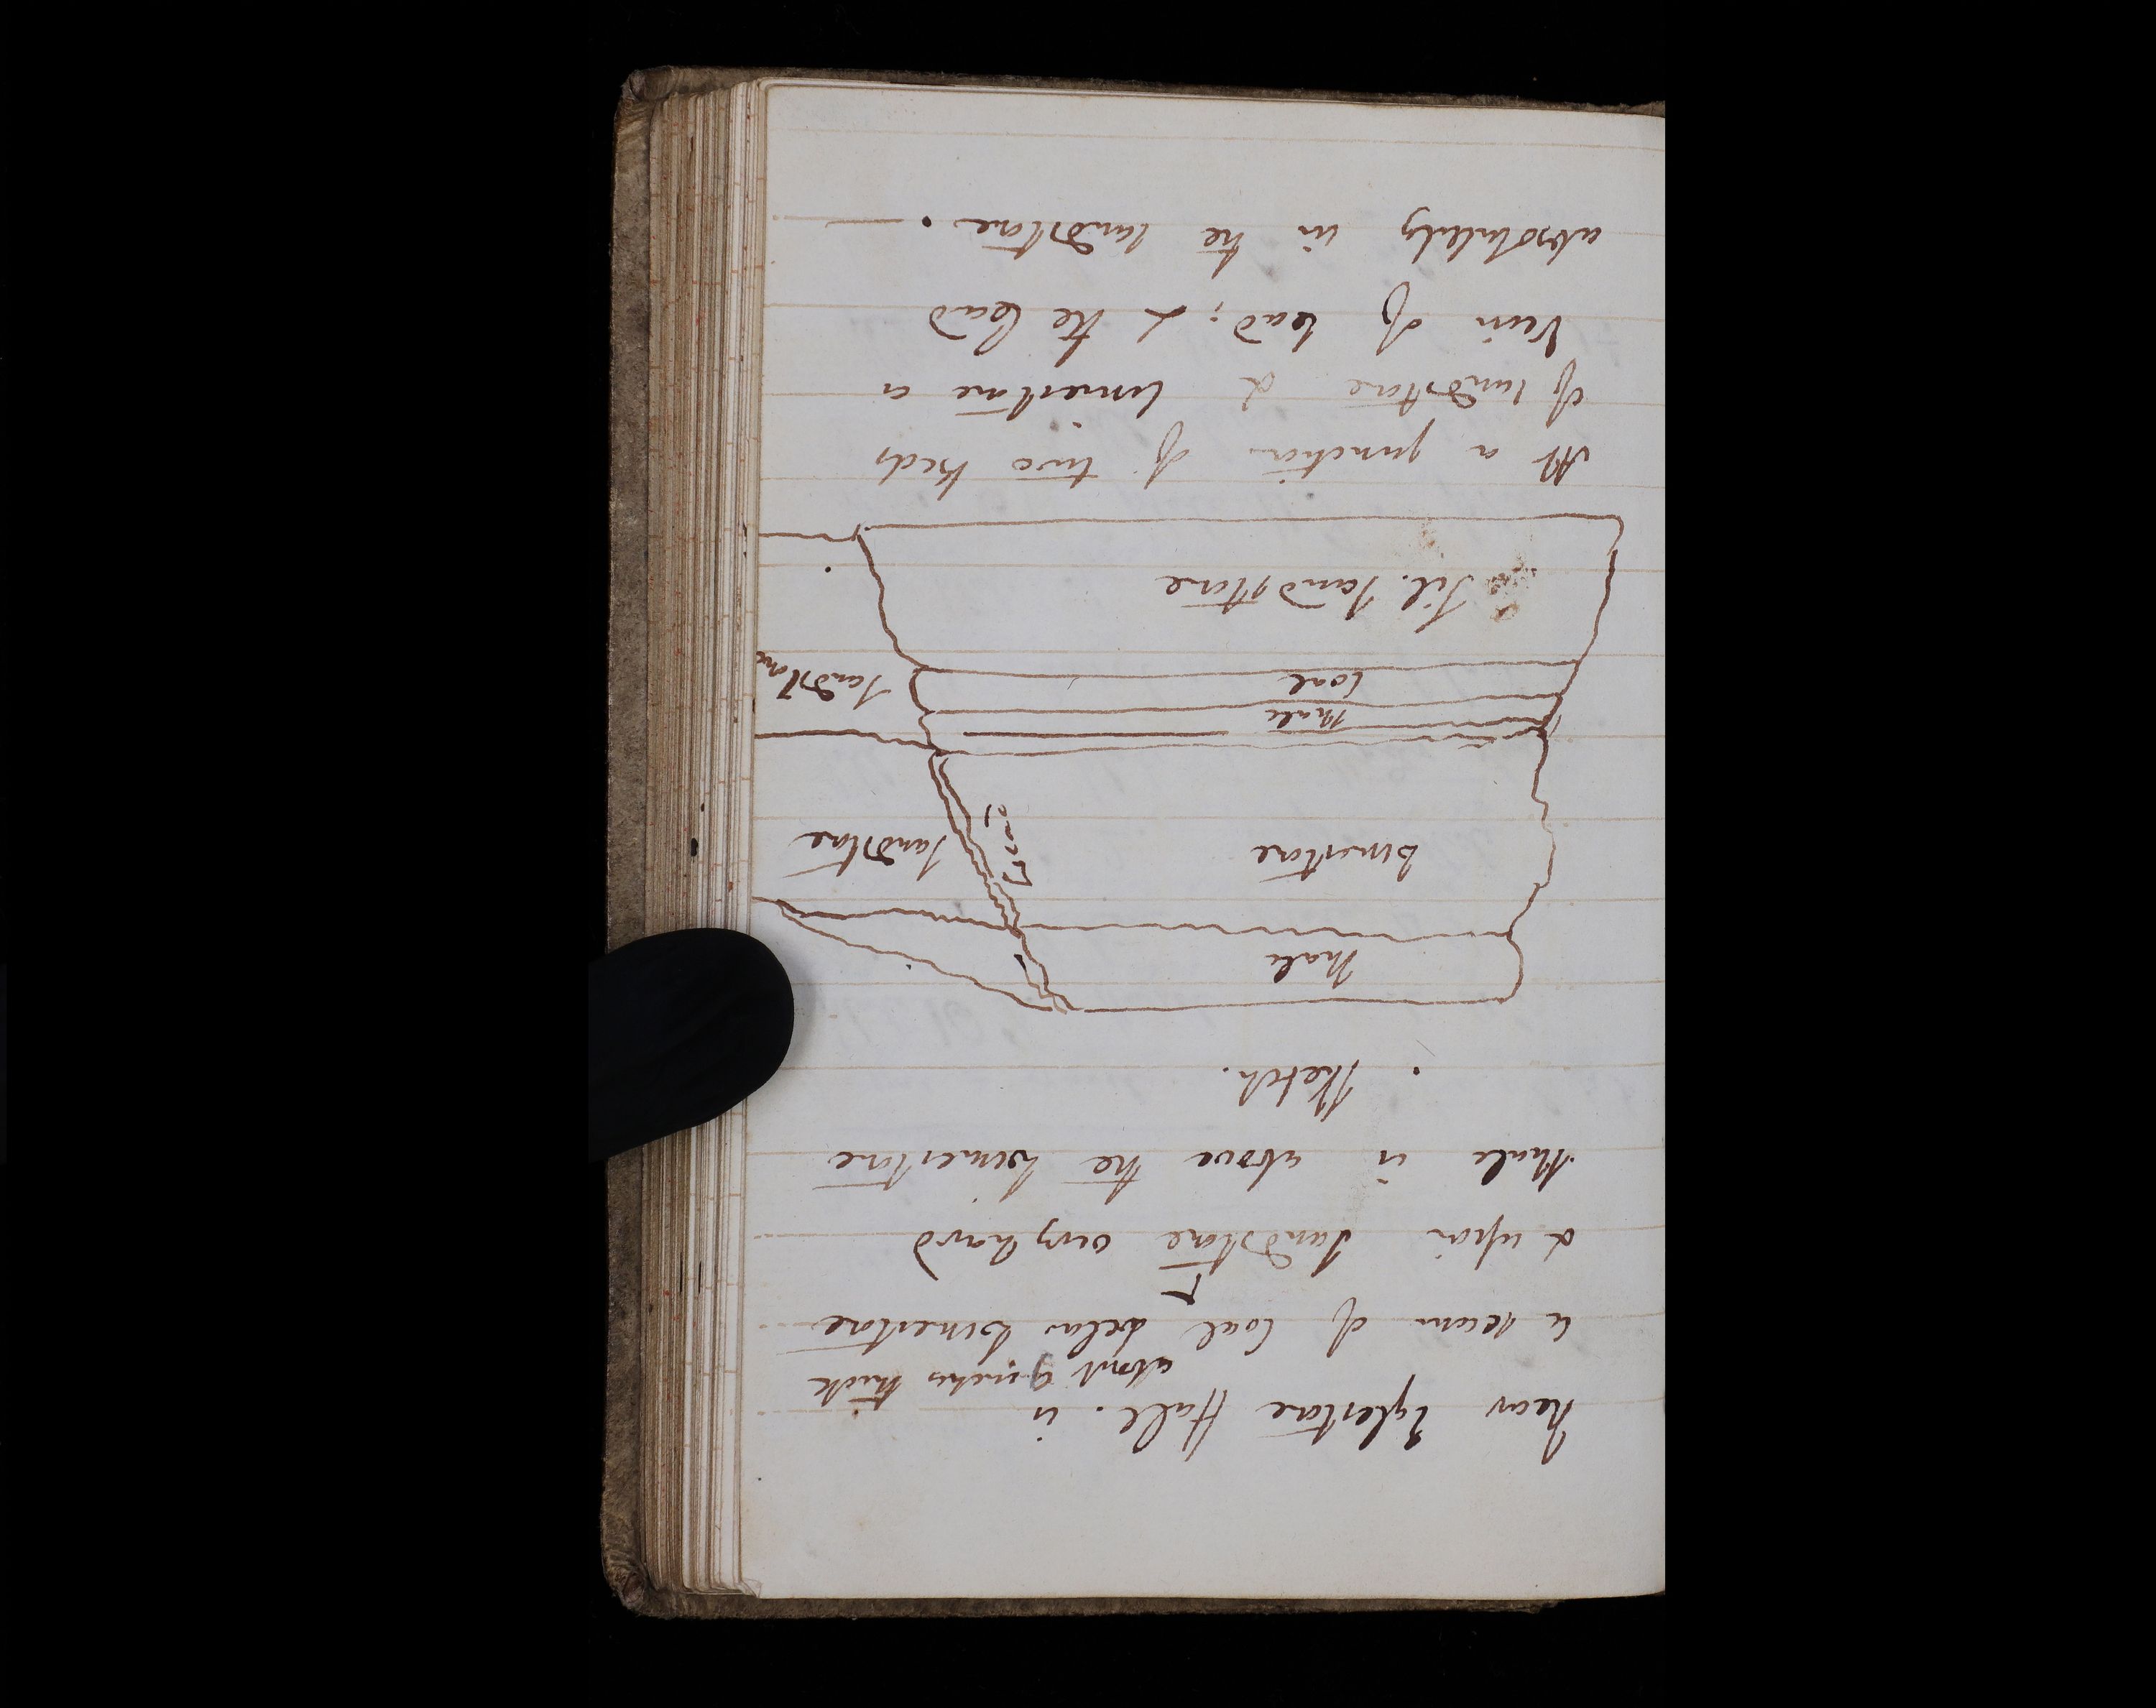 Near Eglestone Hall. is
about 9 inches thick
a seam of Coal below Limestone
& upon Sandstone very hard
Shale is above the Limestone
Sketch.
Shale
Limestone
Lead
Sandstone
Shale
Coal
Sandstone
Sil. Sandstone
At a junction of two beds
of sandstone & limestone a
Vein of lead; & the lead
absolutely in the sandstone.